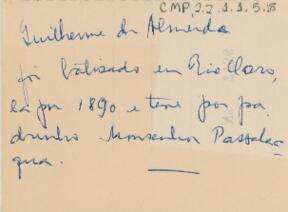 CMP.2.2.1.1.5.8
Guilherme de Almeida
foi batizado em Rio Claro,
la por 1890 e teve por pa
drinho Monsenhor Passalac
qua.